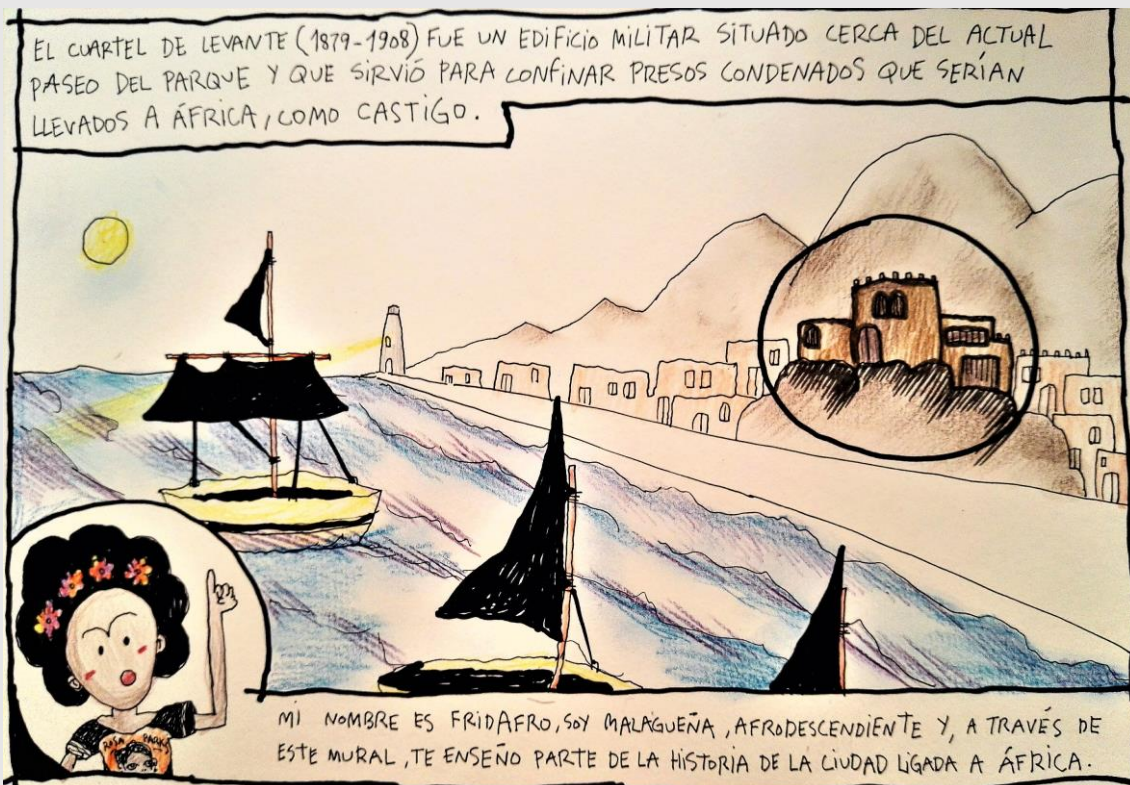 EL CUARTEL DE LEVANTE (1879-1908) FUE UN EDIFICIO MILITAR SITUADO CERCA DEL ACTUAL
PASEO DEL PARQUE Y QUE SIRVIÓ PARA CONFINAR PRESOS CONDENADOS QUE SERÍAN
LLEVADOS A ÁFRICA, COMO CASTIGO.
ROSA PARKS
MI NOMBRE ES FRIDAFRO, SOY MALAGUEÑA, AFRODESCENDIENTE Y, A TRAVÉS DE
ESTE MURAL, TE ENSEÑO PARTE DE LA HISTORIA DE LA CIUDAD LIGADA A ÁFRICA.